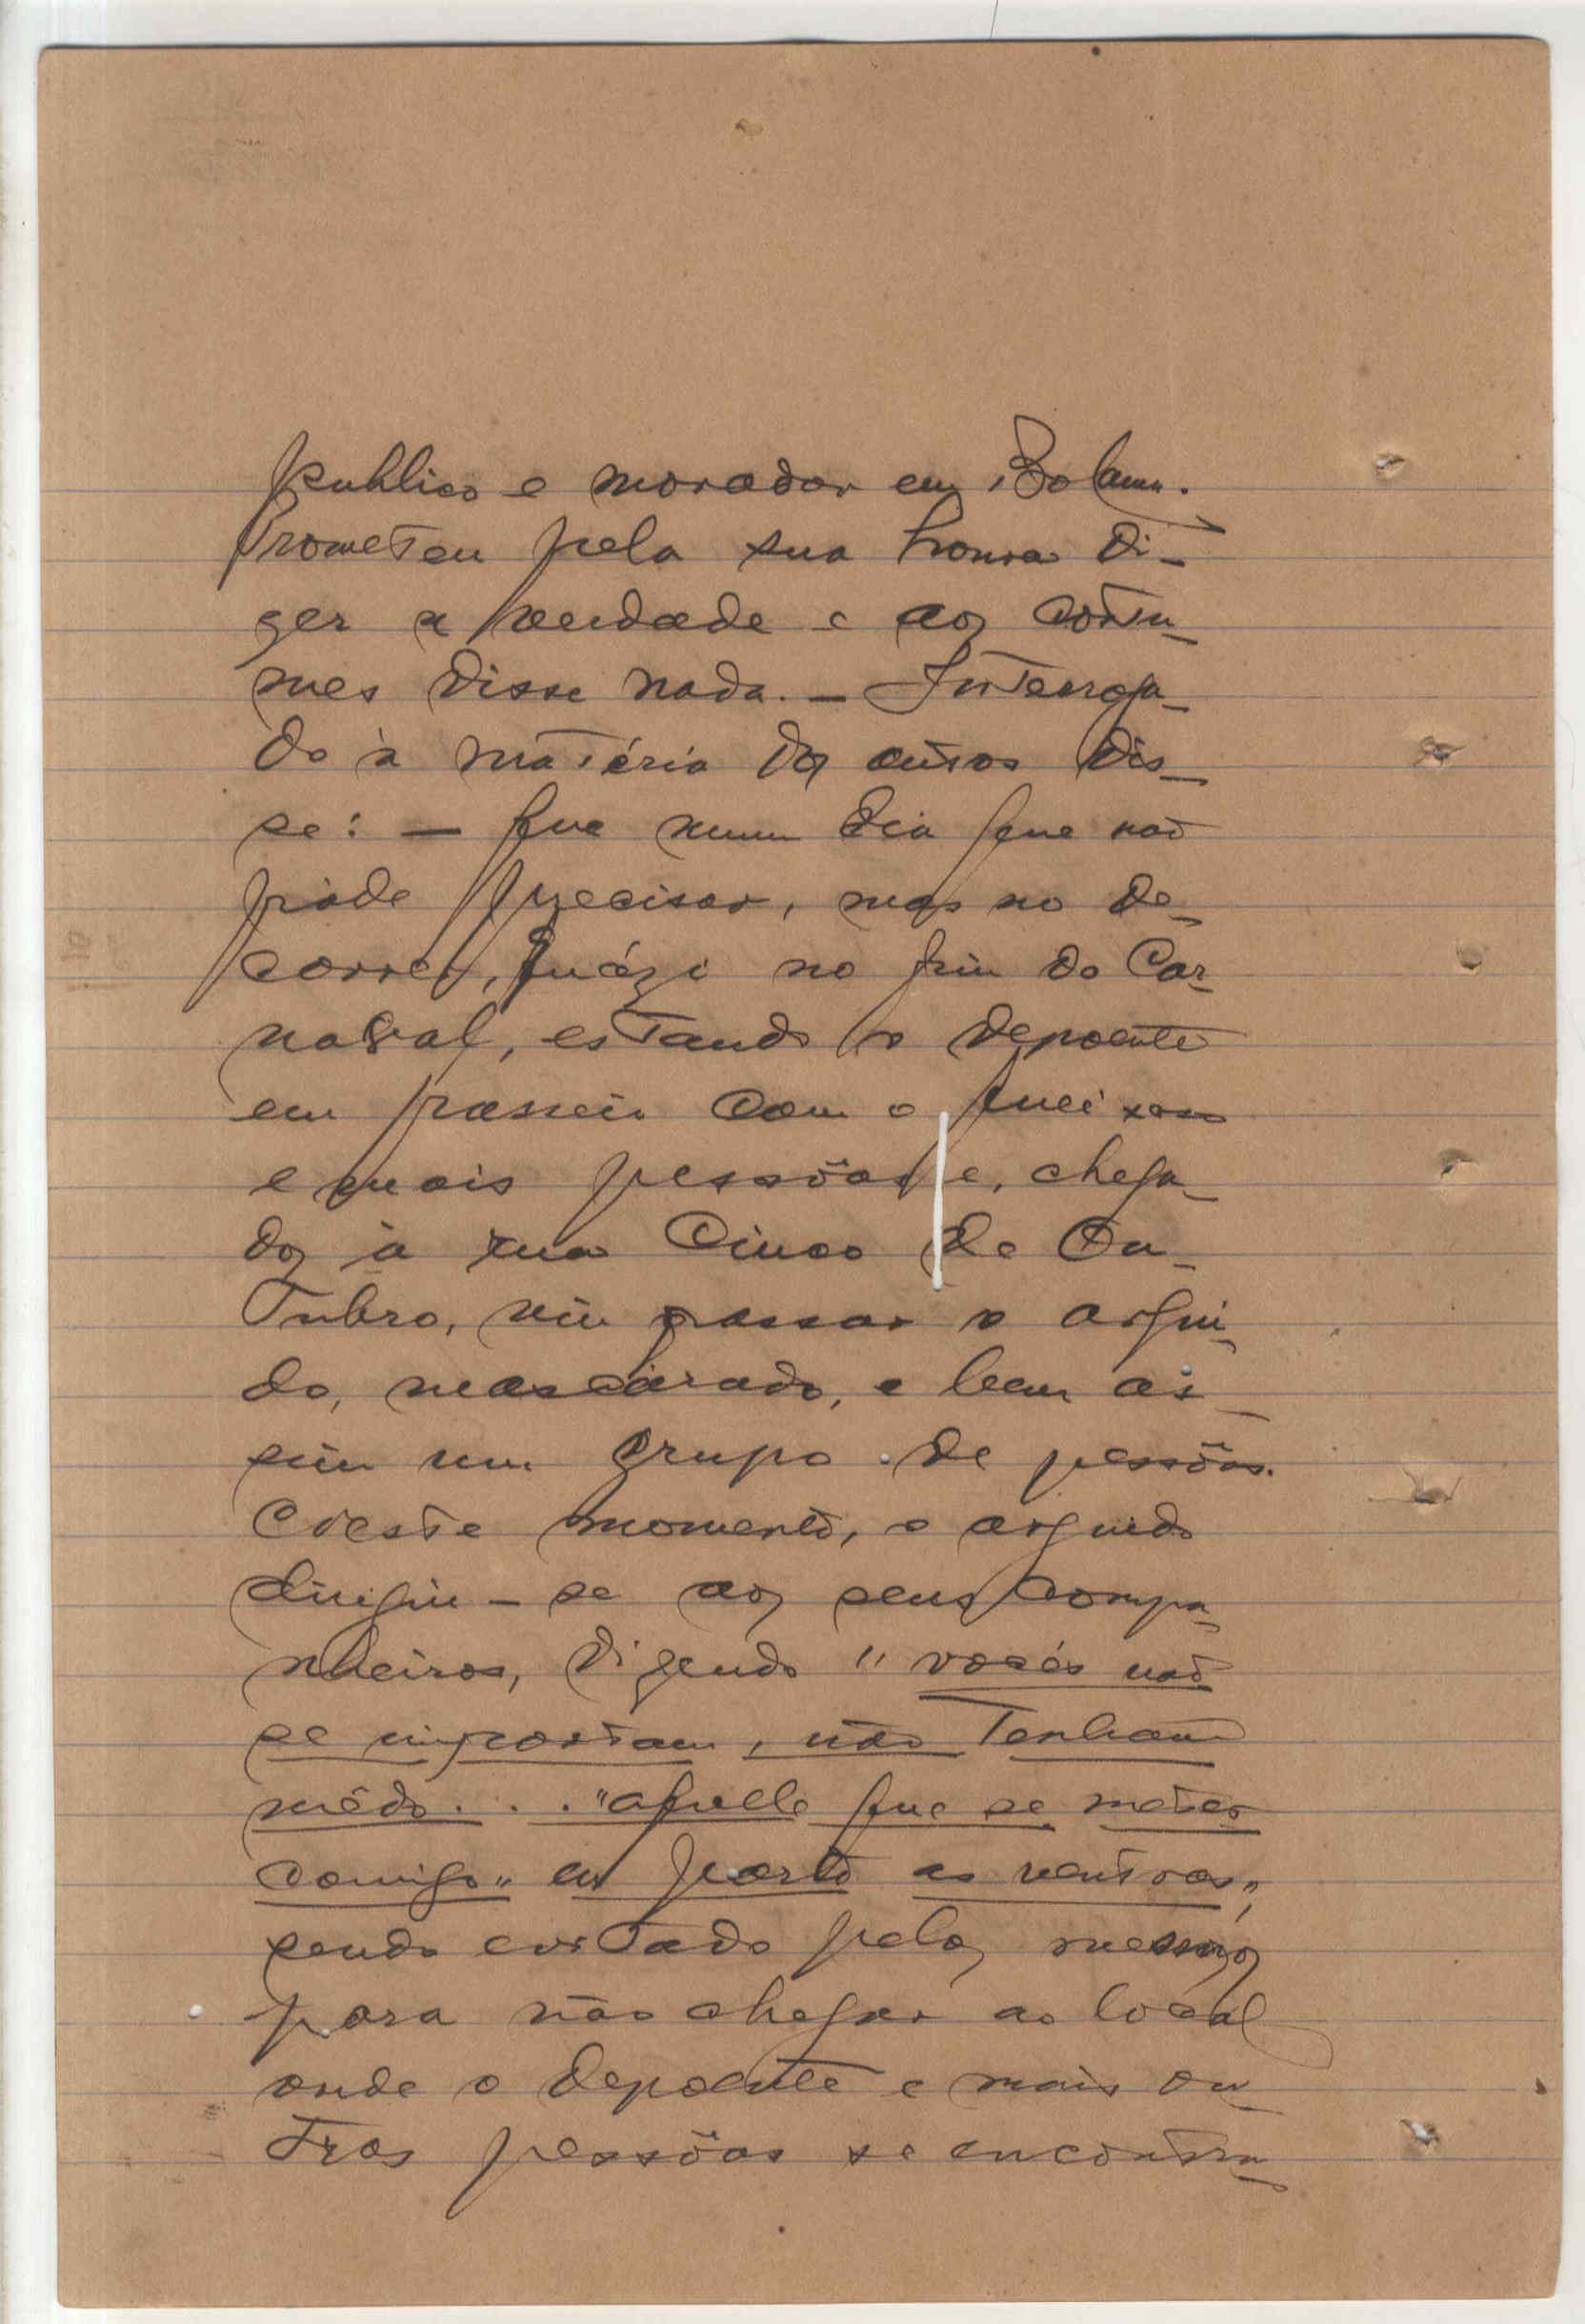 publico e morador em Bolama.
Prometeu pela sua honra di-
zer a verdade e aos costu-
mes disse nada. — Interroga-
do à matéria dos autos dis-
se: — que num dia que não
póde precisar, mas no de-
correr, quázi no fim do Car-
naval, estando o depoente
em passeio com o queixoso
e mais pessôas e, chega-
dos à rua Cinco de Ou-
tubro, viu passar o argui-
do, mascárado, e bem as-
sim um grupo de pessôas.
Neste momento, o arguido
dirigiu-se aos seus compa-
nheiros, dizendo "vocês não
se importam, não tenham
mêdo... "aquelle que se meter
comigo" eu parto as ventas",
sendo evitado pelos mesmos
para não chegar ao local
onde o depoente e mais ou-
tras pessôas se encontra-